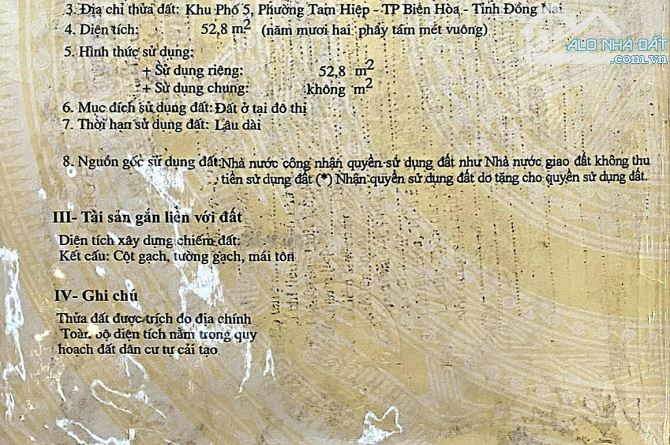 3. Địa chỉ thửa đất: Khu Phố 5, Phường Tam Hiệp - TP Biên Hòa - Tỉnh Đồng Nai
4. Diện tích: 52,8 m2 (năm mươi hai phẩy tám mét vuông)
5. Hình thức sử dụng:
+ Sử dụng riêng: 52,8 m2
+ Sử dụng chung: không m2
6. Mục đích sử dụng đất: Đất ở tại đô thị
7. Thời hạn sử dụng đất: Lâu dài
8. Nguồn gốc sử dụng đất: Nhà nước công nhận quyền sử dụng đất như Nhà nước giao đất không thu
tiền sử dụng đất (*) Nhận quyền sử dụng đất do tặng cho quyền sử dụng đất.
III- Tài sản gắn liền với đất
Diện tích xây dựng chiếm đất:
Kết cấu: Cột gạch, tường gạch, mái tôn
IV- Ghi chú
Thửa đất được trích đo địa chính
Toàn bộ diện tích nằm trong quy
hoạch đất dân cư tự cải tạo
ALO NHÀ ĐẤT
.com.vn